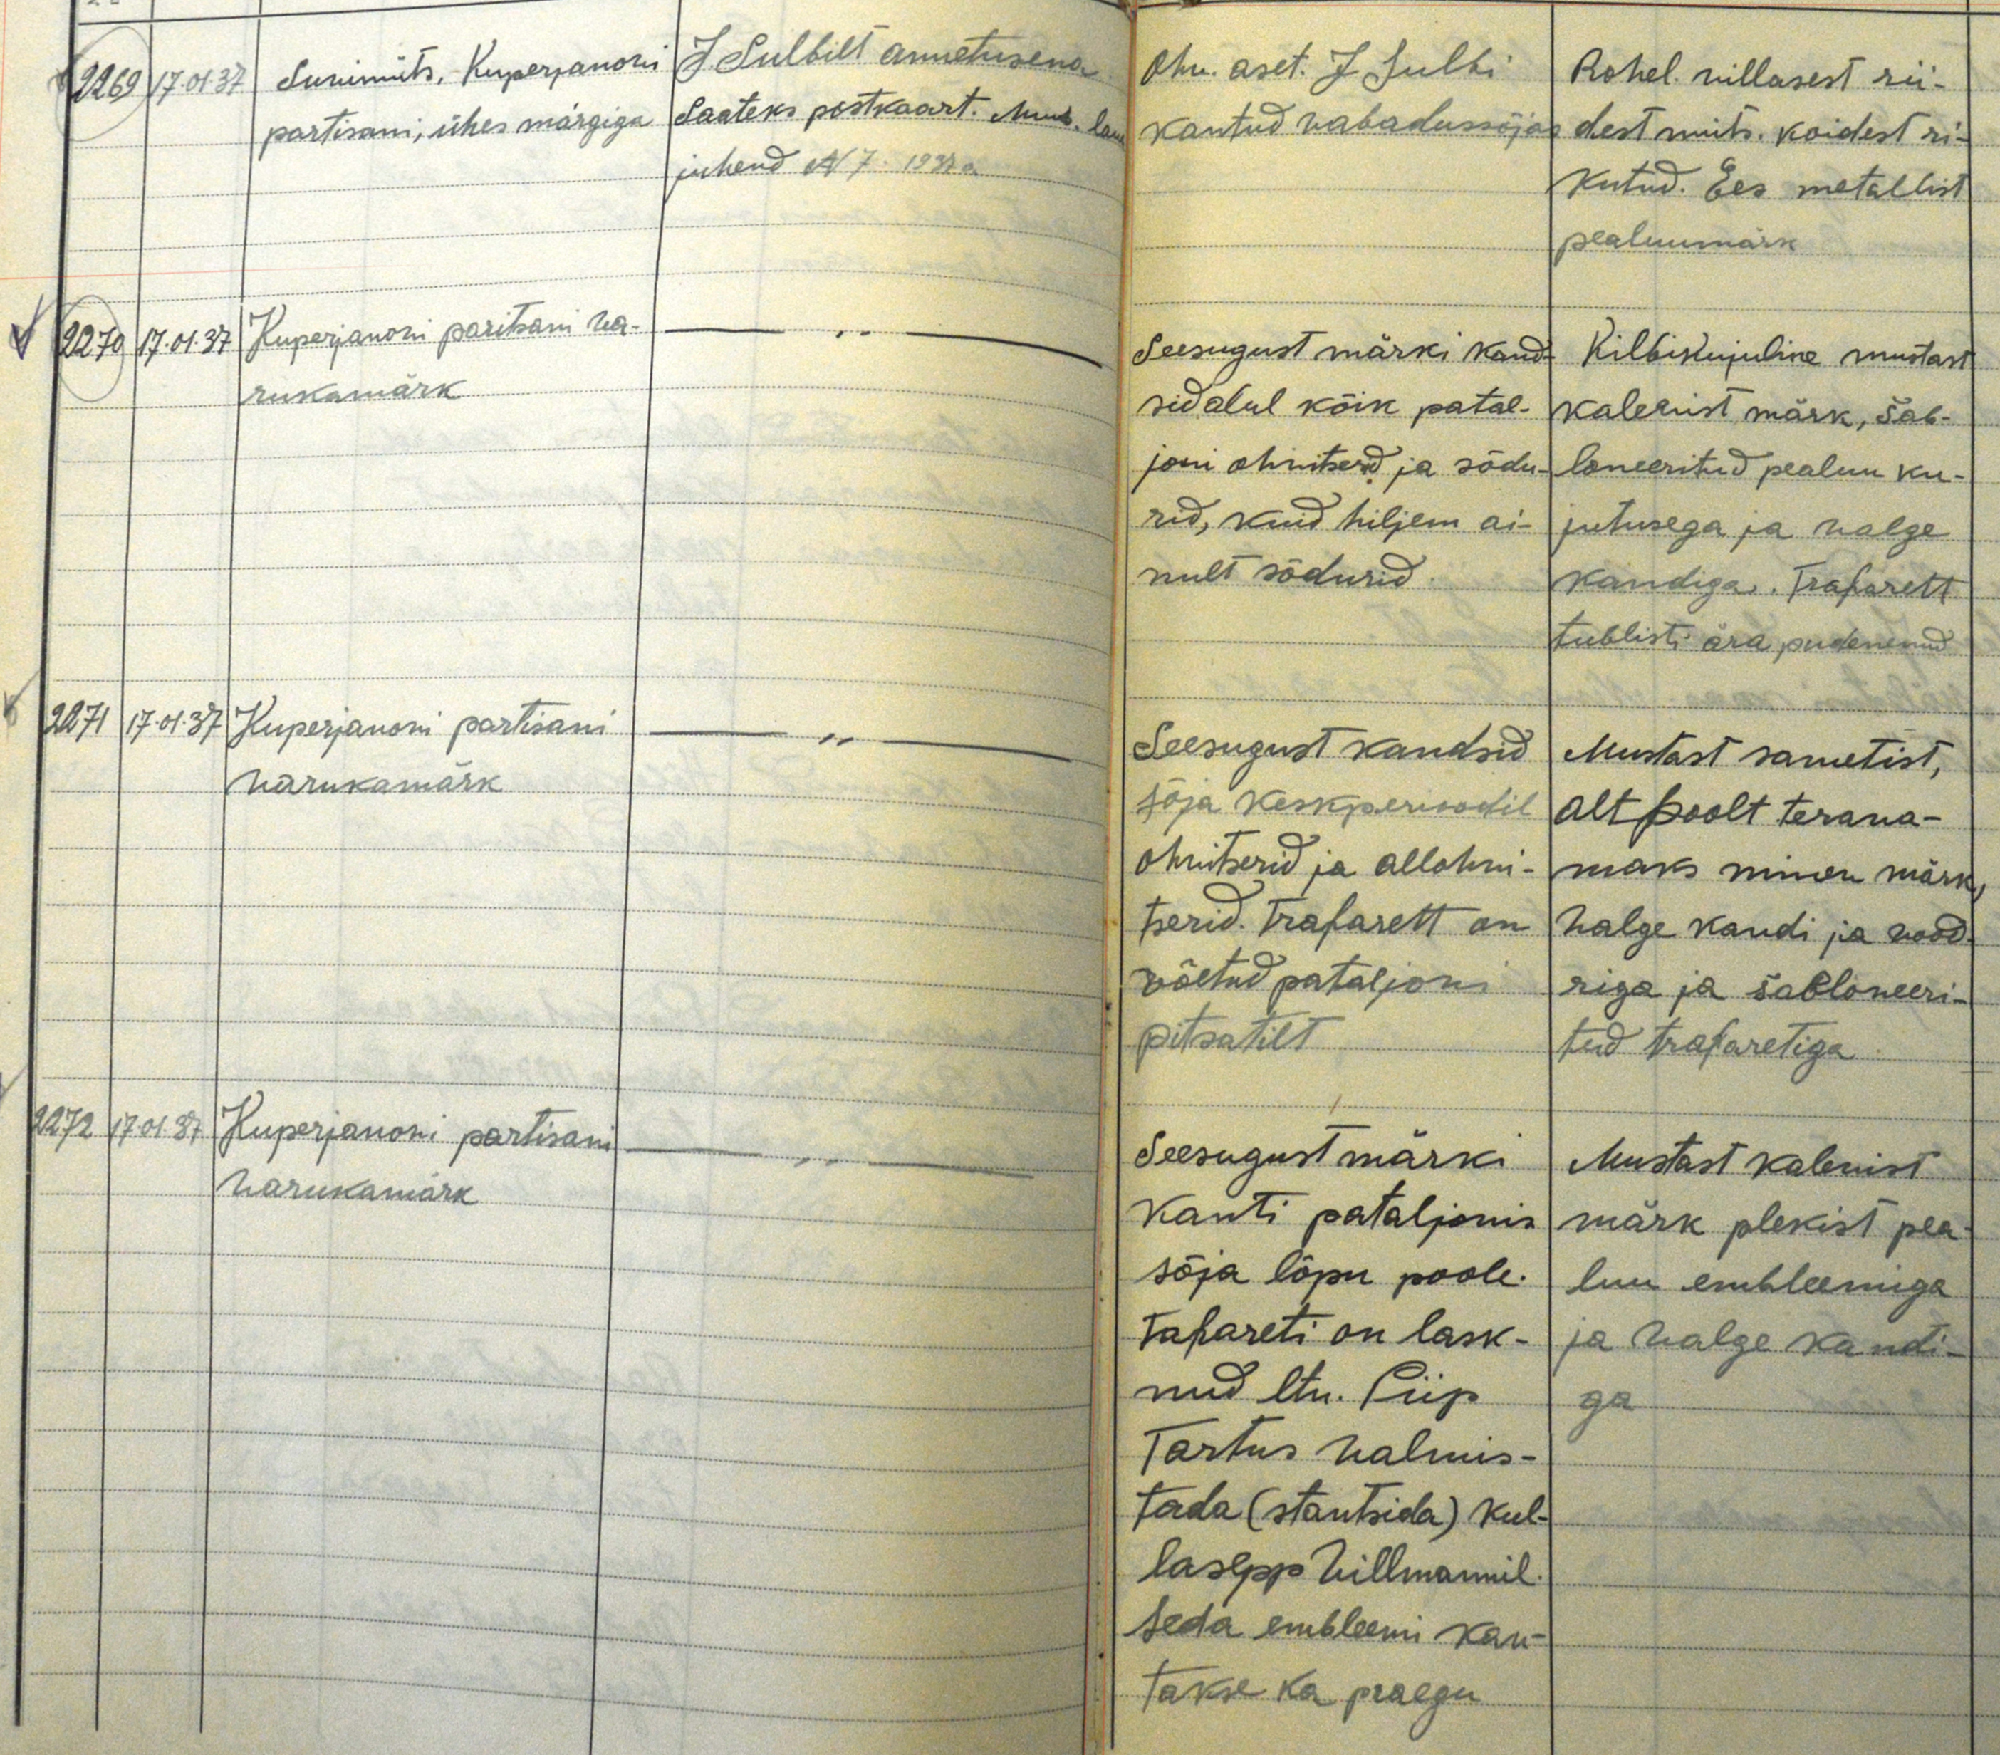 2269 17.01.37 Surimüts, Kuperjanovi
partisani, ühes märgiga
J Sulbilt annetusena
Saateks postkaart. Muus.
juhend N 7.
Ohv. aset. J Sulbi
kantud vabadussõjas
Rohel. villasest rii-
dest müts. koidest ri-
kutud. Ees metallist
pealuumärk
2270 17.01.37 Kuperjanovi paritsani va-
rukamärk
— ,, —
Seesugust märki kand-
sid alul kõik patal-
joni ohvitserid ja sõdu-
rid, kuid hiljem ai-
nult sõdurid.
Kilbikujuline mustast
kalevist märk, šab-
loneeritud pealuu ku-
jutusega ja valge
kandiga. Trafarett
tublisti ära pudenenud
2271 17.01.37 Kuperjanovi partisani
varukamärk
— ,, —
Seesugust kandsid
sõja keskperioodil
ohvitserid ja allohvi-
tserid. Trafarett on
võetud pataljoni
pitsatilt
Mustast sametist,
alt poolt terava-
maks minev märk,
valge kandi ja vood-
riga ja šabloneeri-
tud trafaretiga
2272 17.01.37 Kuperjanovi partisani
varukamärk
— ,, —
Seesugust märki
kanti pataljonis
sõja lõpu poole.
Tafareti on lask-
nud ltn. Piip
Tartus valmis-
tada (stantsida) kul-
lasepp Villmannil.
Seda embleemi kan-
takse ka praegu
Mustast kalevist
märk plekist pea-
luu embleemiga
ja valge kandi-
ga